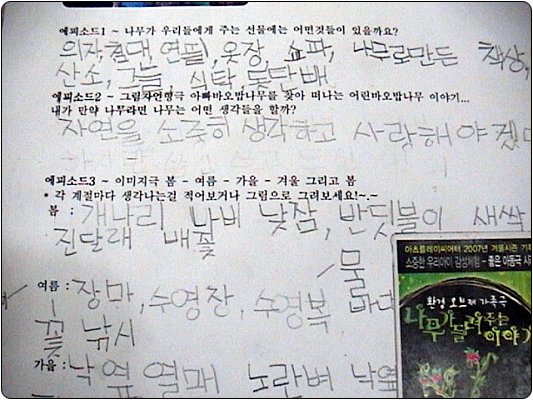 에피소드1 ~ 나무가 우리들에게 주는 선물에는 어떤것들이 있을까요?
의자, 침대, 연필, 옷장, 쇼파, 나무로만든 책상,
산소, 그늘 식탁 돛단배
에피소드2 ~ 그림자연형극 아빠바오밥나무를 찾아 떠나는 어린바오밥나무 이야기...
내가 만약 나무라면 나무는 어떤 생각들을 할까?
자연을 소중히 생각하고 사랑해야겠다
에피소드3 ~ 이미지극 봄 - 여름 - 가을 - 겨울 그리고 봄
* 각 계절마다 생각나는걸 적어보거나 그림으로 그려보세요!~.~
봄 : 개나리 나비 낮잠, 반딧불이 새싹
진달래 배꽃
여름 : 장마, 수영장, 수영복 물 바다
꽃 낚시
가을 : 낙옆 열매 노란벼 낙옆
아츠플레이씨어터 2007년 겨울시즌 기획
소중한 우리아이 감성체험 - 좋은 아동극 시리
환경 오브제 가족극
나무가 들려주는 이야기